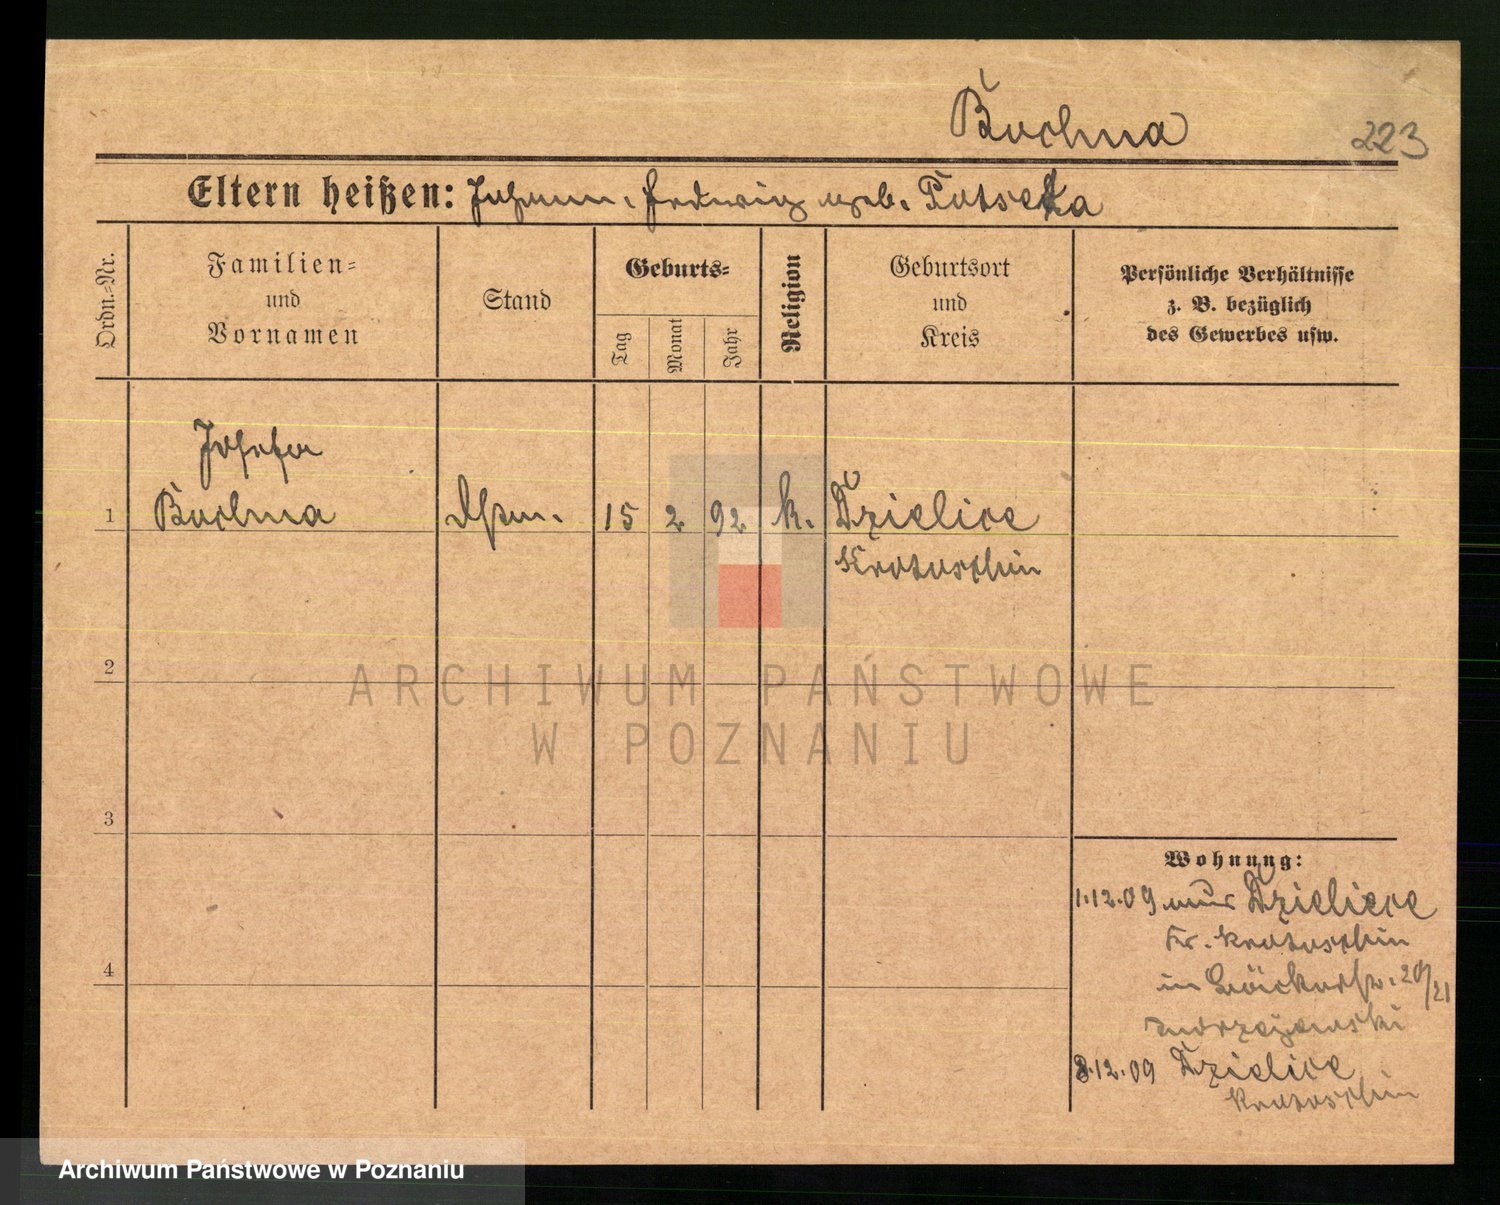 Buchna
223
Eltern heißen: Johann, Hedwig geb. Potscka
Ordn.-Nr.
Familien-
und
Vornamen
Stand
Geburts-
Tag
Monat
Jahr
Religion
Geburtsort
und
Kreis
Persönliche Verhältnisse
z. B. bezüglich
des Gewerbes usw.
Josefa
1 Buchna 15 2 92 k. Dzielice
Krotoschin
2
3
4
Wohnung:
1.12.09 aus Dzielice
Kr. Krotoschin
in 20/21
Andrzejewski
8.12.09 Dzielice
Krotoschin
ARCHIWUM PAŃSTWOWE
W POZNANIU
Archiwum Państwowe w Poznaniu